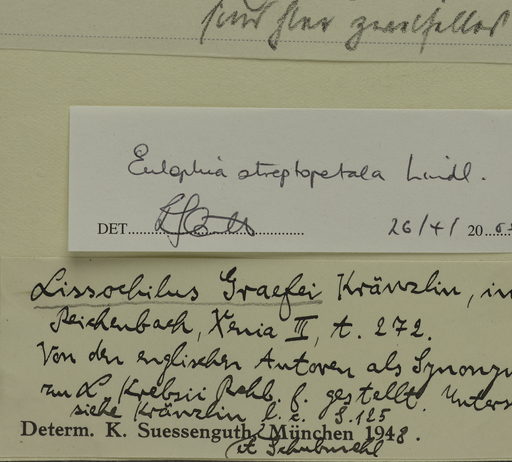 sind hier zweifellos
Eulophia streptopetala Lindl.
DET. 26/4/ 20
Lissochilus Graefei Kränzlin, in
Reichenbach, Xenia III, t. 272.
Von den englischen Autoren als Synonym
zu L. Krebsii Rchb. f. gestellt. Unters
siehe Kränzlin l. c. S. 125
Determ. K. Suessenguth, München 1948.